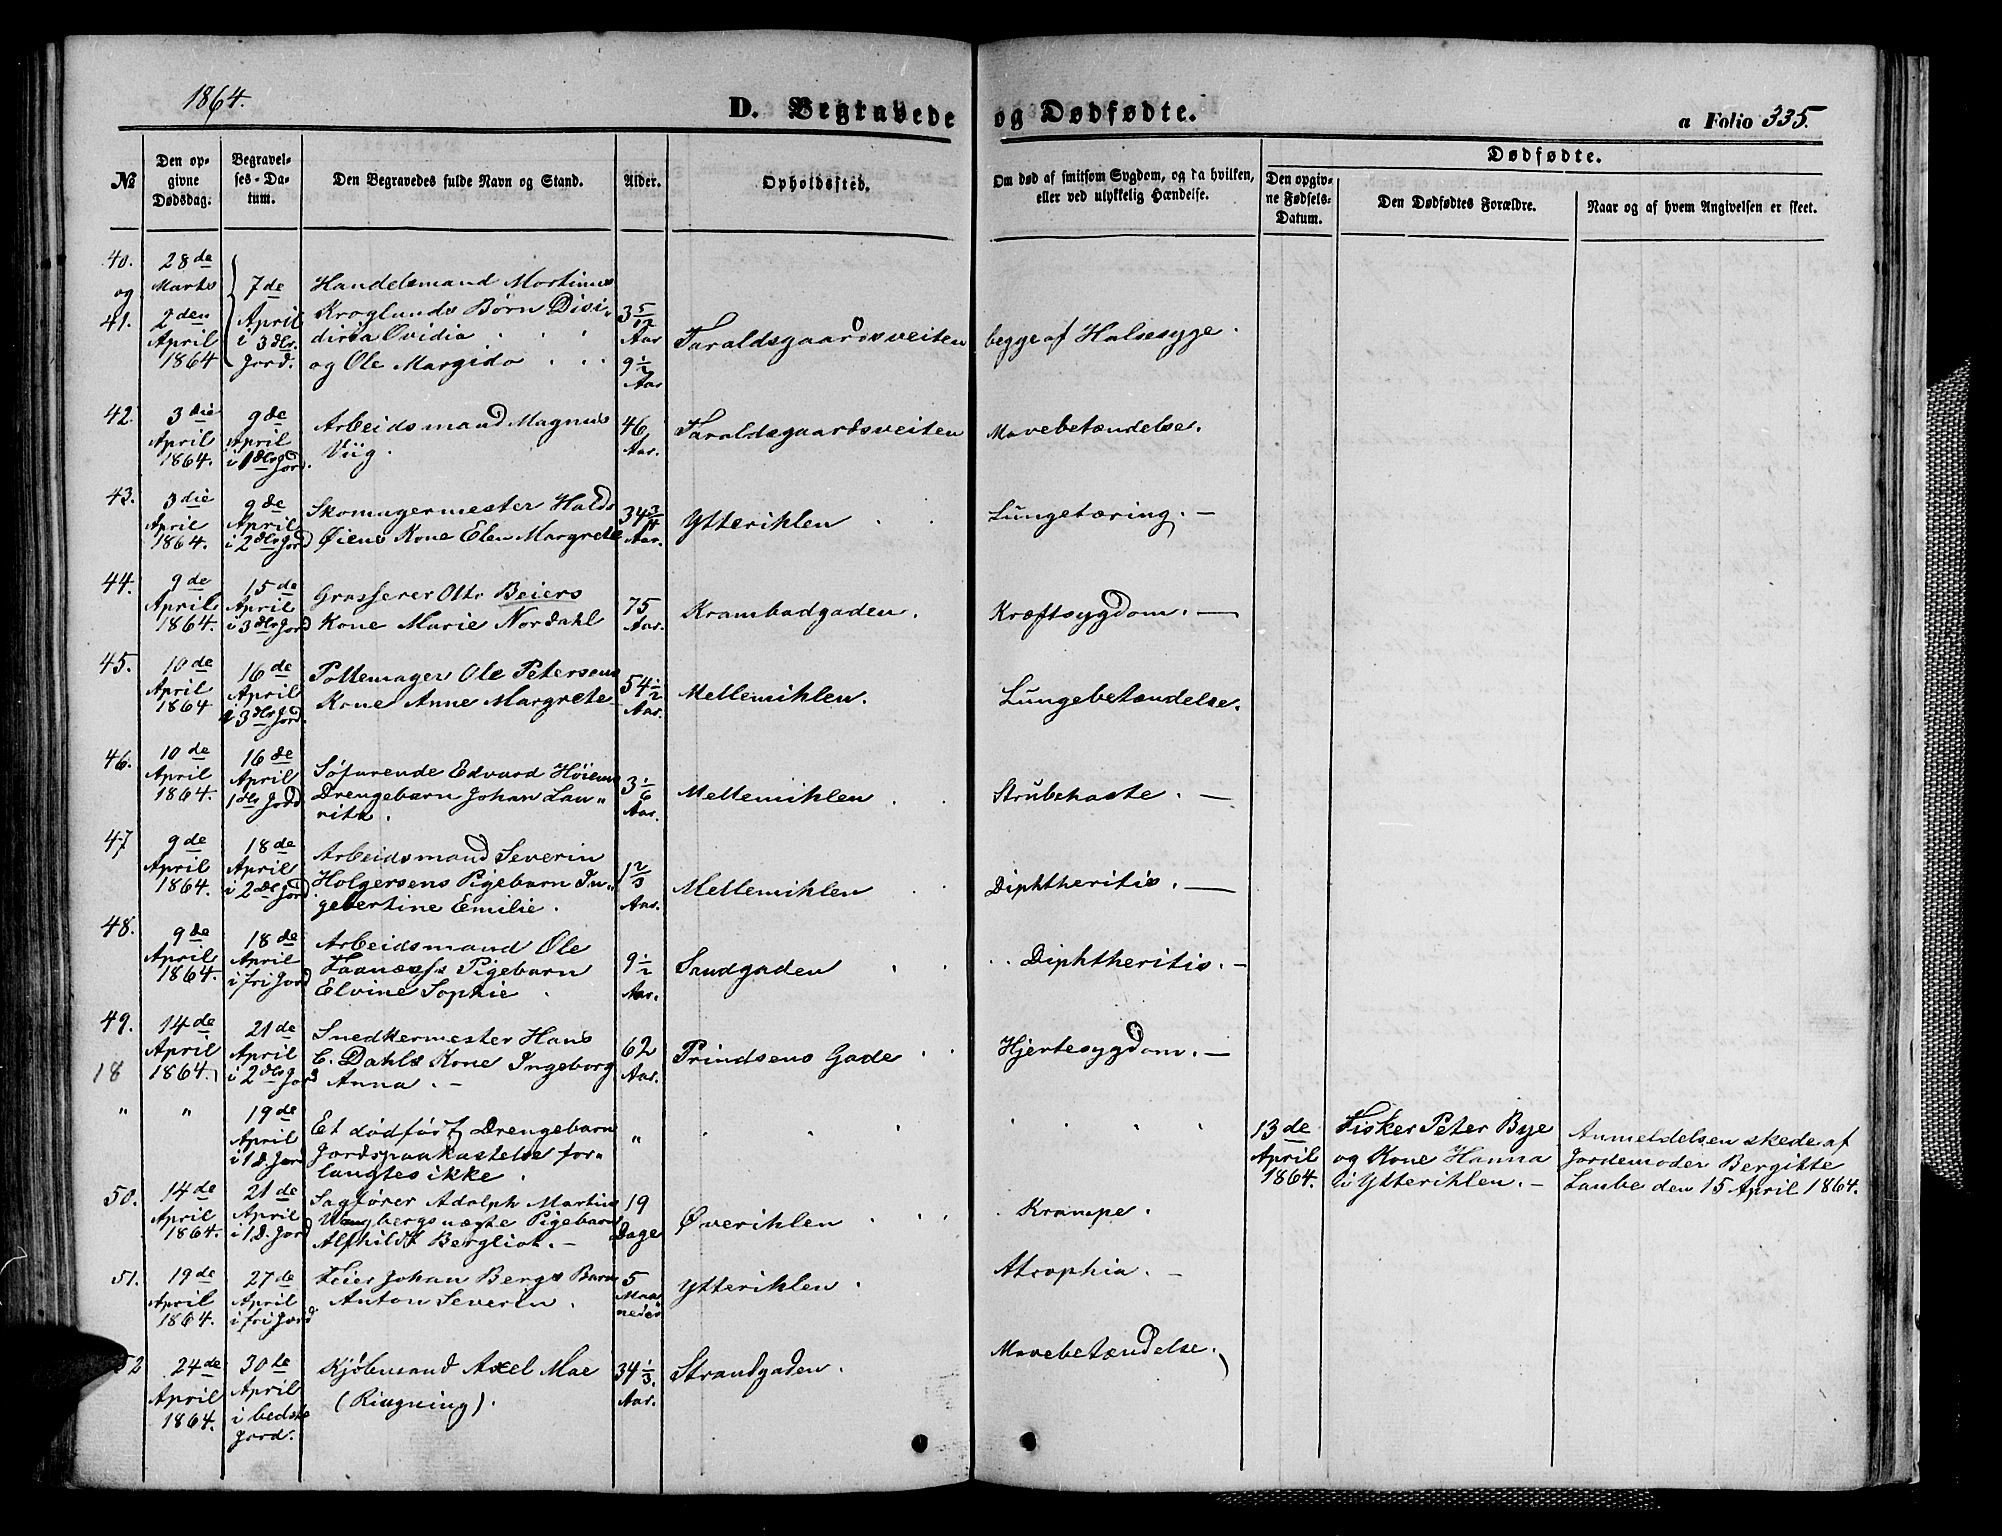 1864.
D. Begravede og Dødfødte.
a Folio 335.
№
Den opgivne Dødsdag.
Begravelses-Datum.
Den Begravedes fulde Navn og Stand.
Alder.
Opholdssted.
Om død af smitsom Sygdom, og da hvilken, eller ved ulykkelig Hændelse.
Dødfødte.
Den opgivne Fødsels-Datum.
Den Dødfødtes Forældre.
Naar og af hvem Angivelsen er skeet.
40. og 41.
28de Marts
2den April 1864
7de April i 3 dlr. Jord.
Handelsmand Martinus
Kroglunds Børn Disi-
diria Ovidia
og Ole Margido
3 5/12 Aar
9 1/2 Aar
Taraldsgaardsveiten
begge af Halssyge.
42.
3die April 1864.
9de April i 1 dlrs Jord.
Arbeidsmand Magnus
Viig.
46 Aar.
Taraldsgaardsveiten
Mavebetændelse.
43.
3die April 1864.
9de April i 2 dlrs Jord
Skomagermester Halds
Øiens Kone Elen Margrete
34 3/4 Aar.
Ytterihlen
Lungetæring. —
44.
9de April 1864.
15de April i 3 dlrs Jord
Grosserer Otto Beiers
Kone Marie Nordahl
75 Aar.
Krambodgaden.
Kræftsygdom. —
45.
10de April 1864
16de April i 3 dlrs Jord.
Pottemager Ole Petersens
Kone Anne Margrete
54 1/2 Aar.
Mellemihlen.
Lungebetændelse.
46.
10de April 1864.
16de April 1 dlr Jord
Søfarende Edvard Høiems
Drengebarn Johan Lau-
ritz.
3 1/6 Aar.
Mellemihlen.
Strubehoste. —
47
9de April 1864.
18de April i 2 dlrs Jord
Arbeidsmand Severin
Holgersens Pigebarn In-
gebertine Emilie.
1 2/3 Aar.
Mellemihlen
Diphtheritis. —
48.
9de April 1864.
18de April i fri Jord
Arbeidsmand Ole
Pigebarn
Elvine Sophie
9 1/2 Aar.
Sandgaden
Diphtheritis. —
49.
14de April 1864.
21de April i 2 dlrs Jord
Snedkermester Hans
C. Dahls Kone Ingeborg
Anna. —
62 Aar.
Prindsens Gade
Hjertesygdom. —
18
"
"
19de April i 1 d. Jord
Et dødfødt Drengebarn
Jordspaakastelse for-
langtes ikke.
"
13de April 1864.
Fisker Peter Bye
og Kone Hanna
i Ytterihlen. —
Anmeldelsen skede af
Jordemoder Bergitte
Laube den 15 April 1864.
50.
14de April 1864.
21de April i 1 D. Jord
Sagfører Adolph Martin
Wangbergs uægte Pigebarn
Alfhildt Bergliot. —
19 Dage
Øverihlen
Krampe.
51.
19de April 1864.
27de April i fri Jord.
Feier Johan Bergs Barn
Anton Severin.
5 Maaneder
Ytterihlen.
Atrophia. —
52
24de April 1864.
30te April i bedste Jord.
Kjøbmand Axel Moe
(Ringning).
34 1/3 Aar.
Strandgaden.
Mavebetændelse.